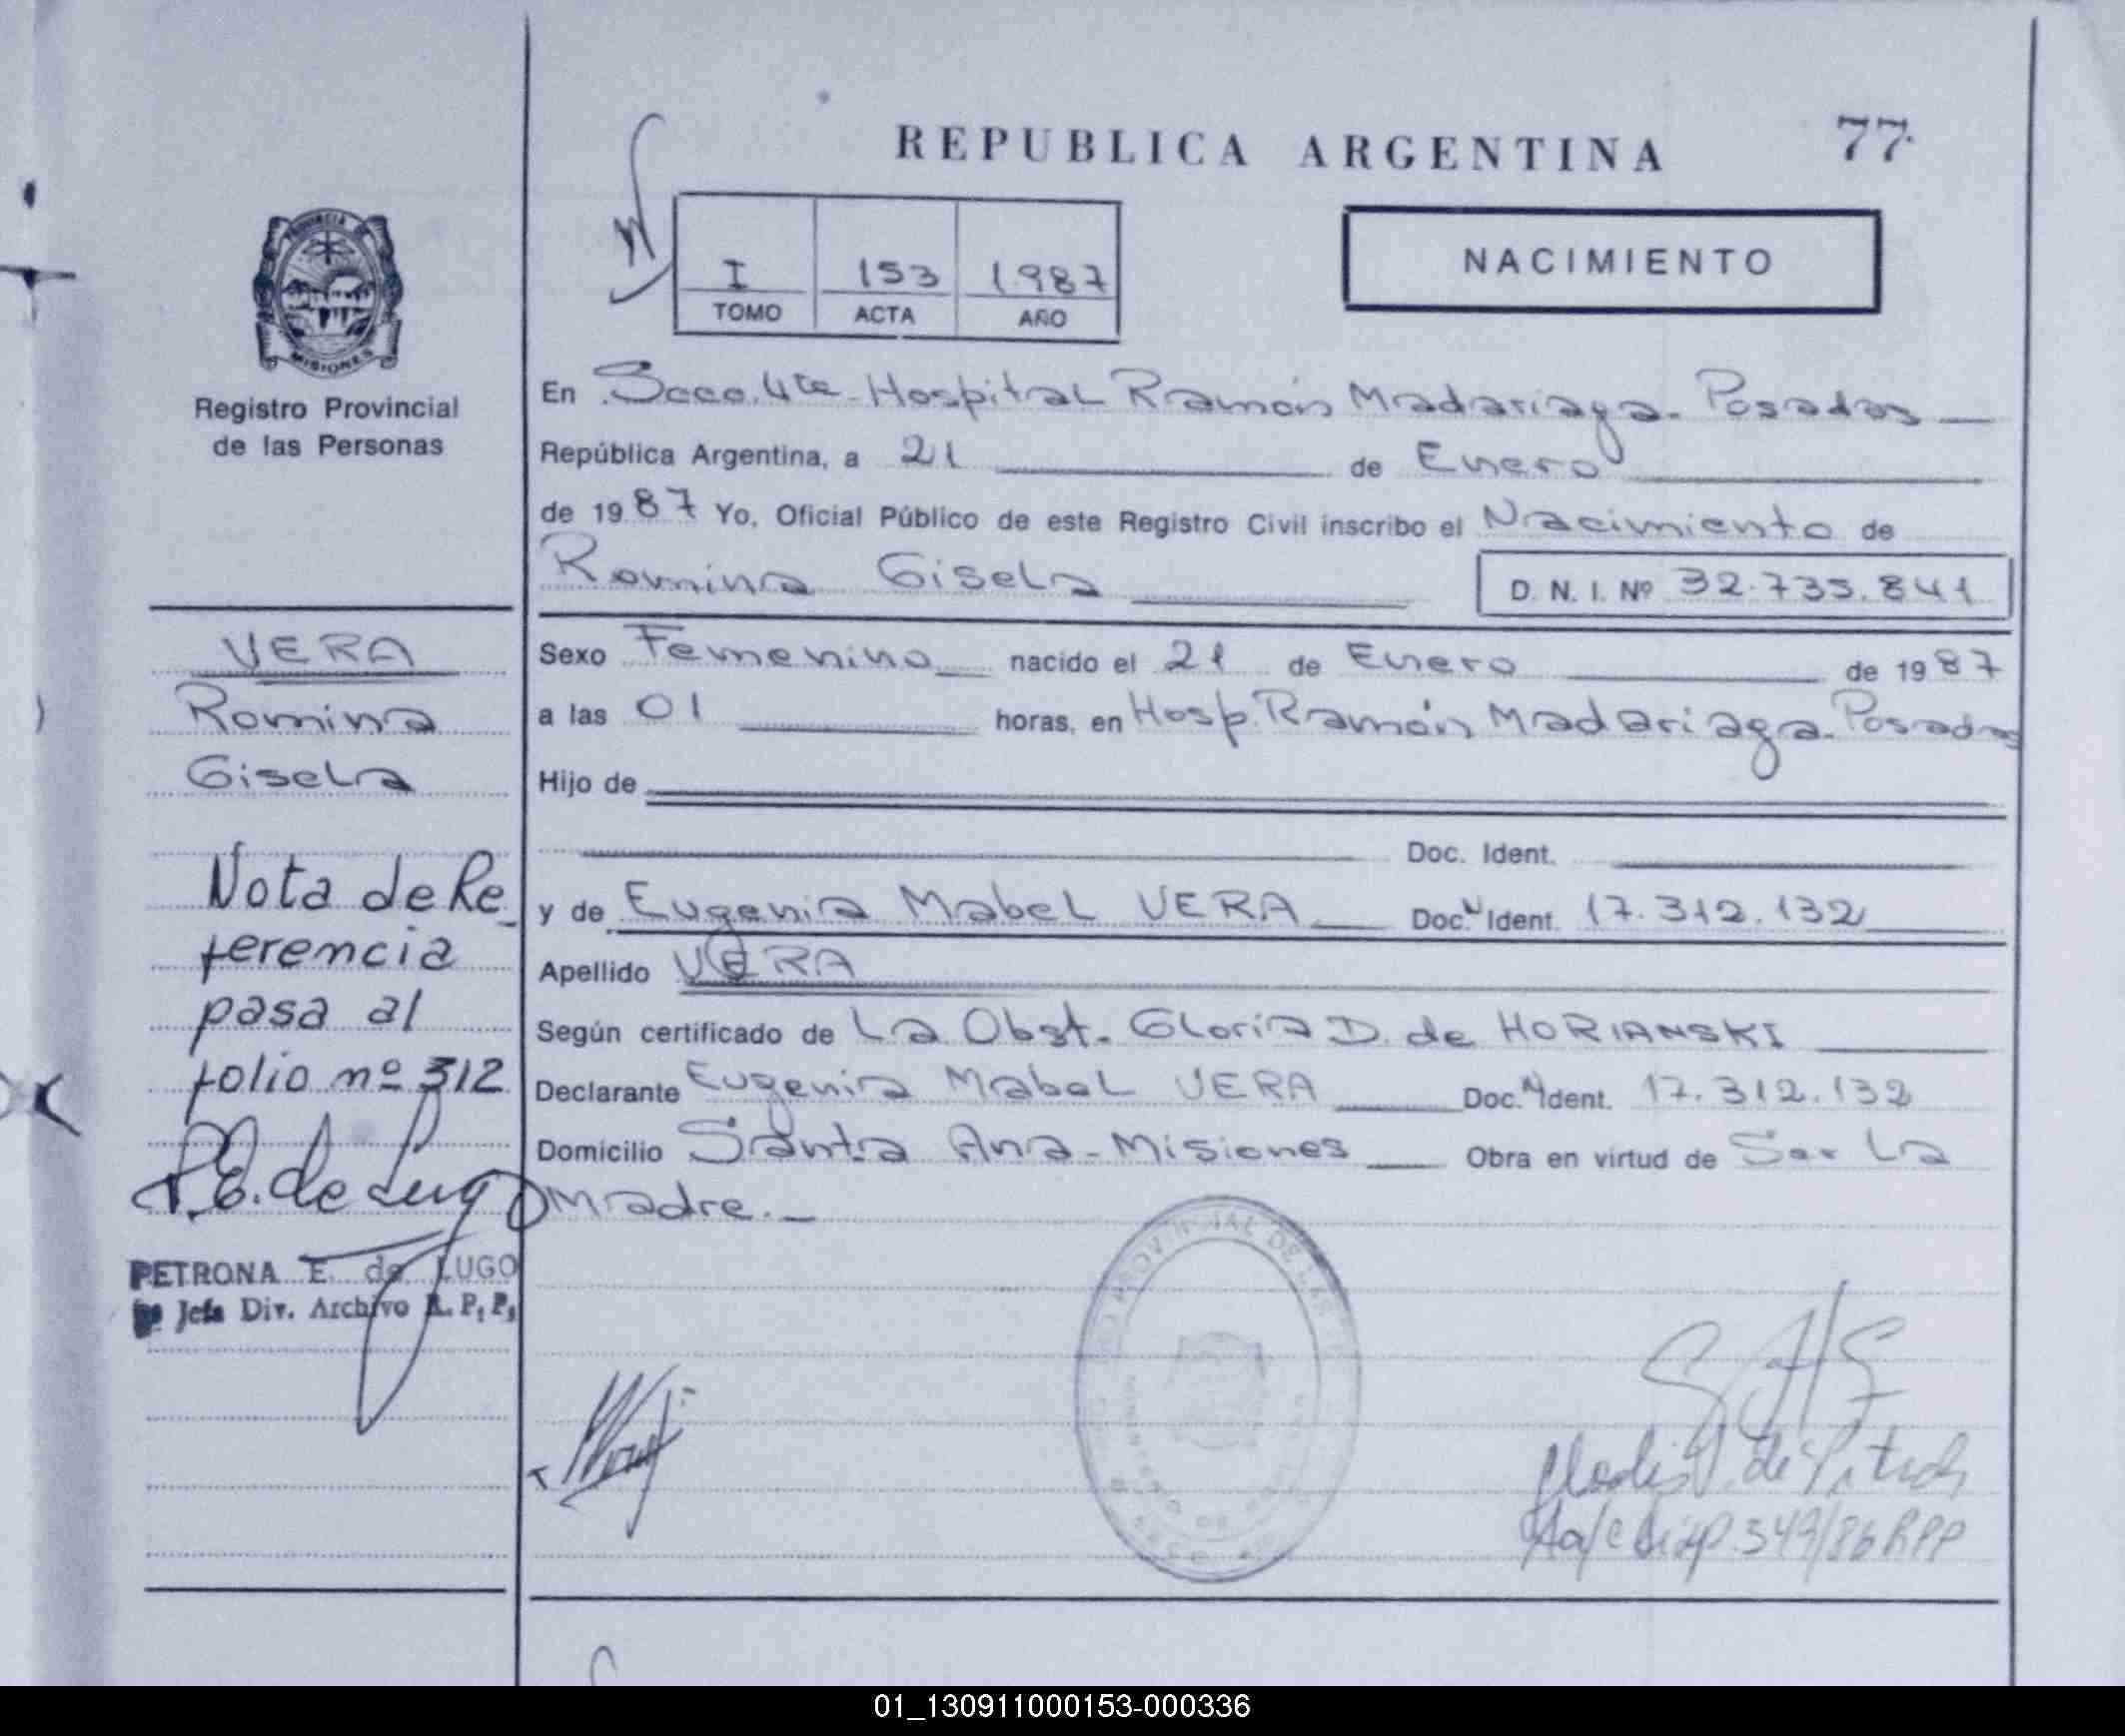 REPUBLICA ARGENTINA
77
PROVINCIA DE
MISIONES
Registro Provincial
de las Personas
I 153 1.987
TOMO ACTA AÑO
NACIMIENTO
En Secc. 4ta - Hospital Ramón Madariaga - Posadas
República Argentina, a 21 de Enero
de 1987 Yo, Oficial Público de este Registro Civil inscribo el Nacimiento de
Romina Gisela D. N. I. Nº 32.735.841
Sexo Femenino nacido el 21 de Enero de 1987
a las 01 horas, en Hosp. Ramón Madariaga - Posadas
Hijo de
Doc. Ident.
y de Eugenia Mabel VERA Doc. N Ident. 17.312.132
Apellido VERA
Según certificado de La Obst. Gloria D. de HORIANSKI
Declarante Eugenia Mabel VERA Doc. N Ident. 17.312.132
Domicilio Santa Ana - Misiones Obra en virtud de Ser La
Madre. -
VERA
Romina
Gisela
Nota de Re_
ferencia
pasa al
folio nº 312
P.E. de Lugo
PETRONA E. de LUGO
Jefa Div. Archivo R. P. P.
PROVINCIAL DE LAS
MINISTERIO DE
de
A/c Disp. 349/86 RPP
01_130911000153-000336